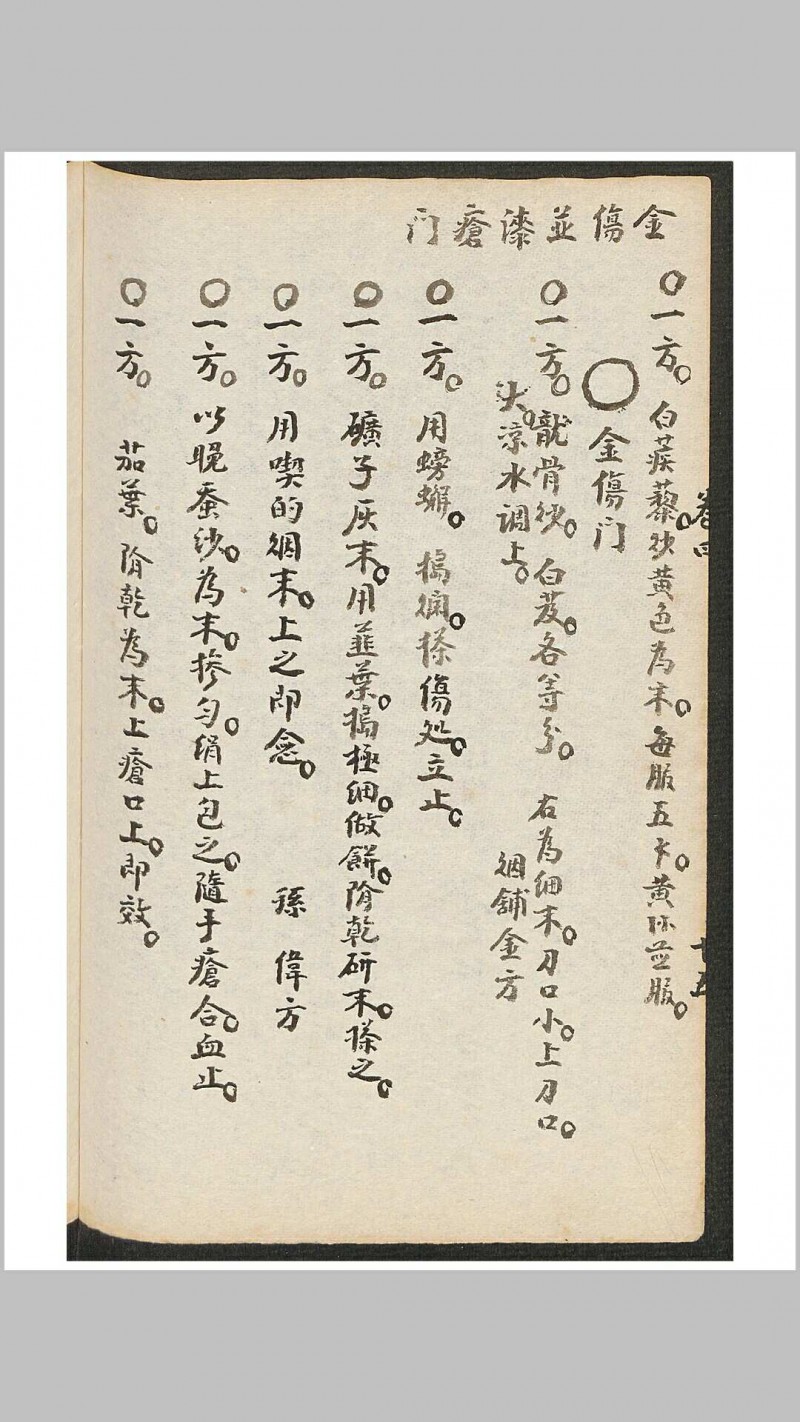 金傷並漆瘡門
卷四
十五
〇一方。白蒺藜。炒黄色為末。每服五卜。黄酒並服。
〇金傷门
〇一方。龍骨炒。白芨。各等分。右為细末。刀口小。上刀口。
大。涼水调上。烟舖金方
〇一方。用螃蠏。搗爛。搽傷処。立止。
〇一方。礦子灰末。用韮葉。搗極细。做餅。隂乾研末。搽之。
〇一方。用喫的烟末。上之即念。孫偉方
〇一方。以晚蚕纱。為末。掺匀。绢上包之。隨手瘡合。血止。
〇一方。茄葉。隂乾為末。上瘡口上。即效。